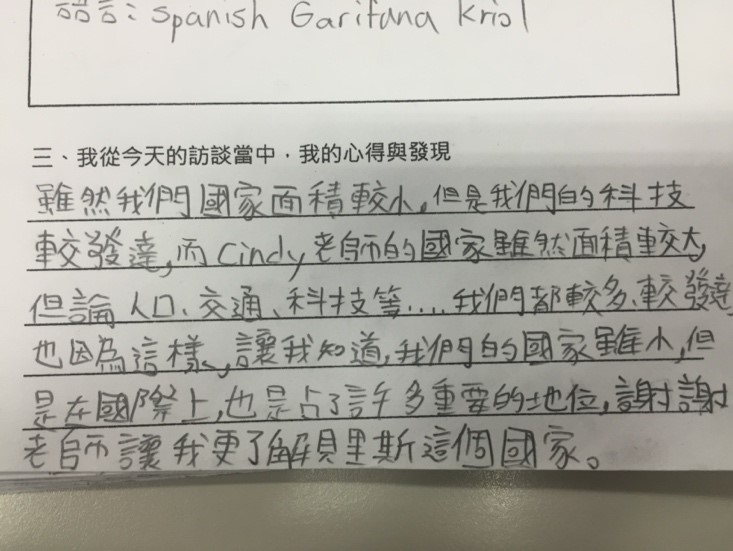 語言：Spanish Garifuna Kriol
三、我從今天的訪談當中，我的心得與發現
雖然我們國家面積較小，但是我們的科技
較發達，而Cindy老師的國家雖然面積較大，
但論人口、交通、科技等....我們都較多、較發達
也因為這樣，讓我知道，我們的國家雖小，但
是在國際上，也是占了許多重要的地位，謝謝
老師讓我更了解貝里斯這個國家。